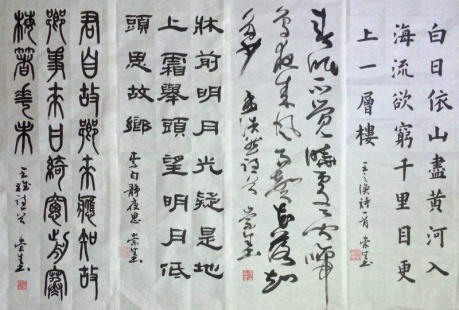 白日依山盡黃河入
海流欲窮千里目更
上一層樓
王之渙詩一首
春眠不覺曉處處聞啼
鳥夜來風雨聲花落知
多少
孟浩然詩
牀前明月光疑是地
上霜舉頭望明月低
頭思故鄉
李白靜夜思
君自故鄉來應知故
鄉事來日綺窗前寒
梅著花未
王維詩